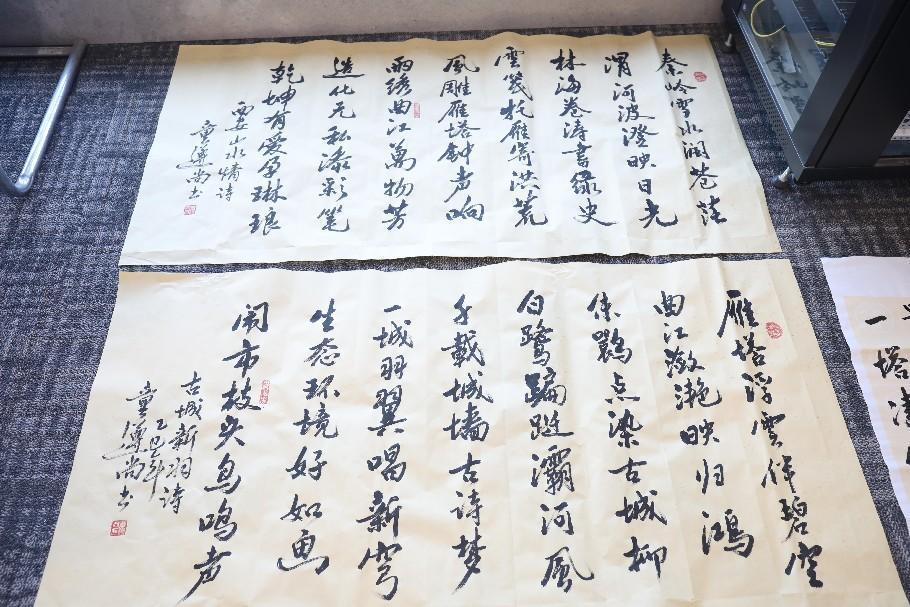 秦岭雪水润苍茫
渭河波澄映日光
林海卷涛书绿史
云笺托雁寄洪荒
风雕雁塔钟声响
雨绣曲江万物芳
造化无私添彩笔
乾坤有爱孕琳琅
西安山水情诗
童遵尚书
雁塔浮云伴碧空
曲江潋滟映归鸿
朱鹮点染古城柳
白鹭蹁跹灞河风
千载城墙古诗梦
一城羽翼唱新穹
生态环境好如画
闹市枝头鸟鸣声
古城新羽诗
乙巳年
童遵尚书
一
塔